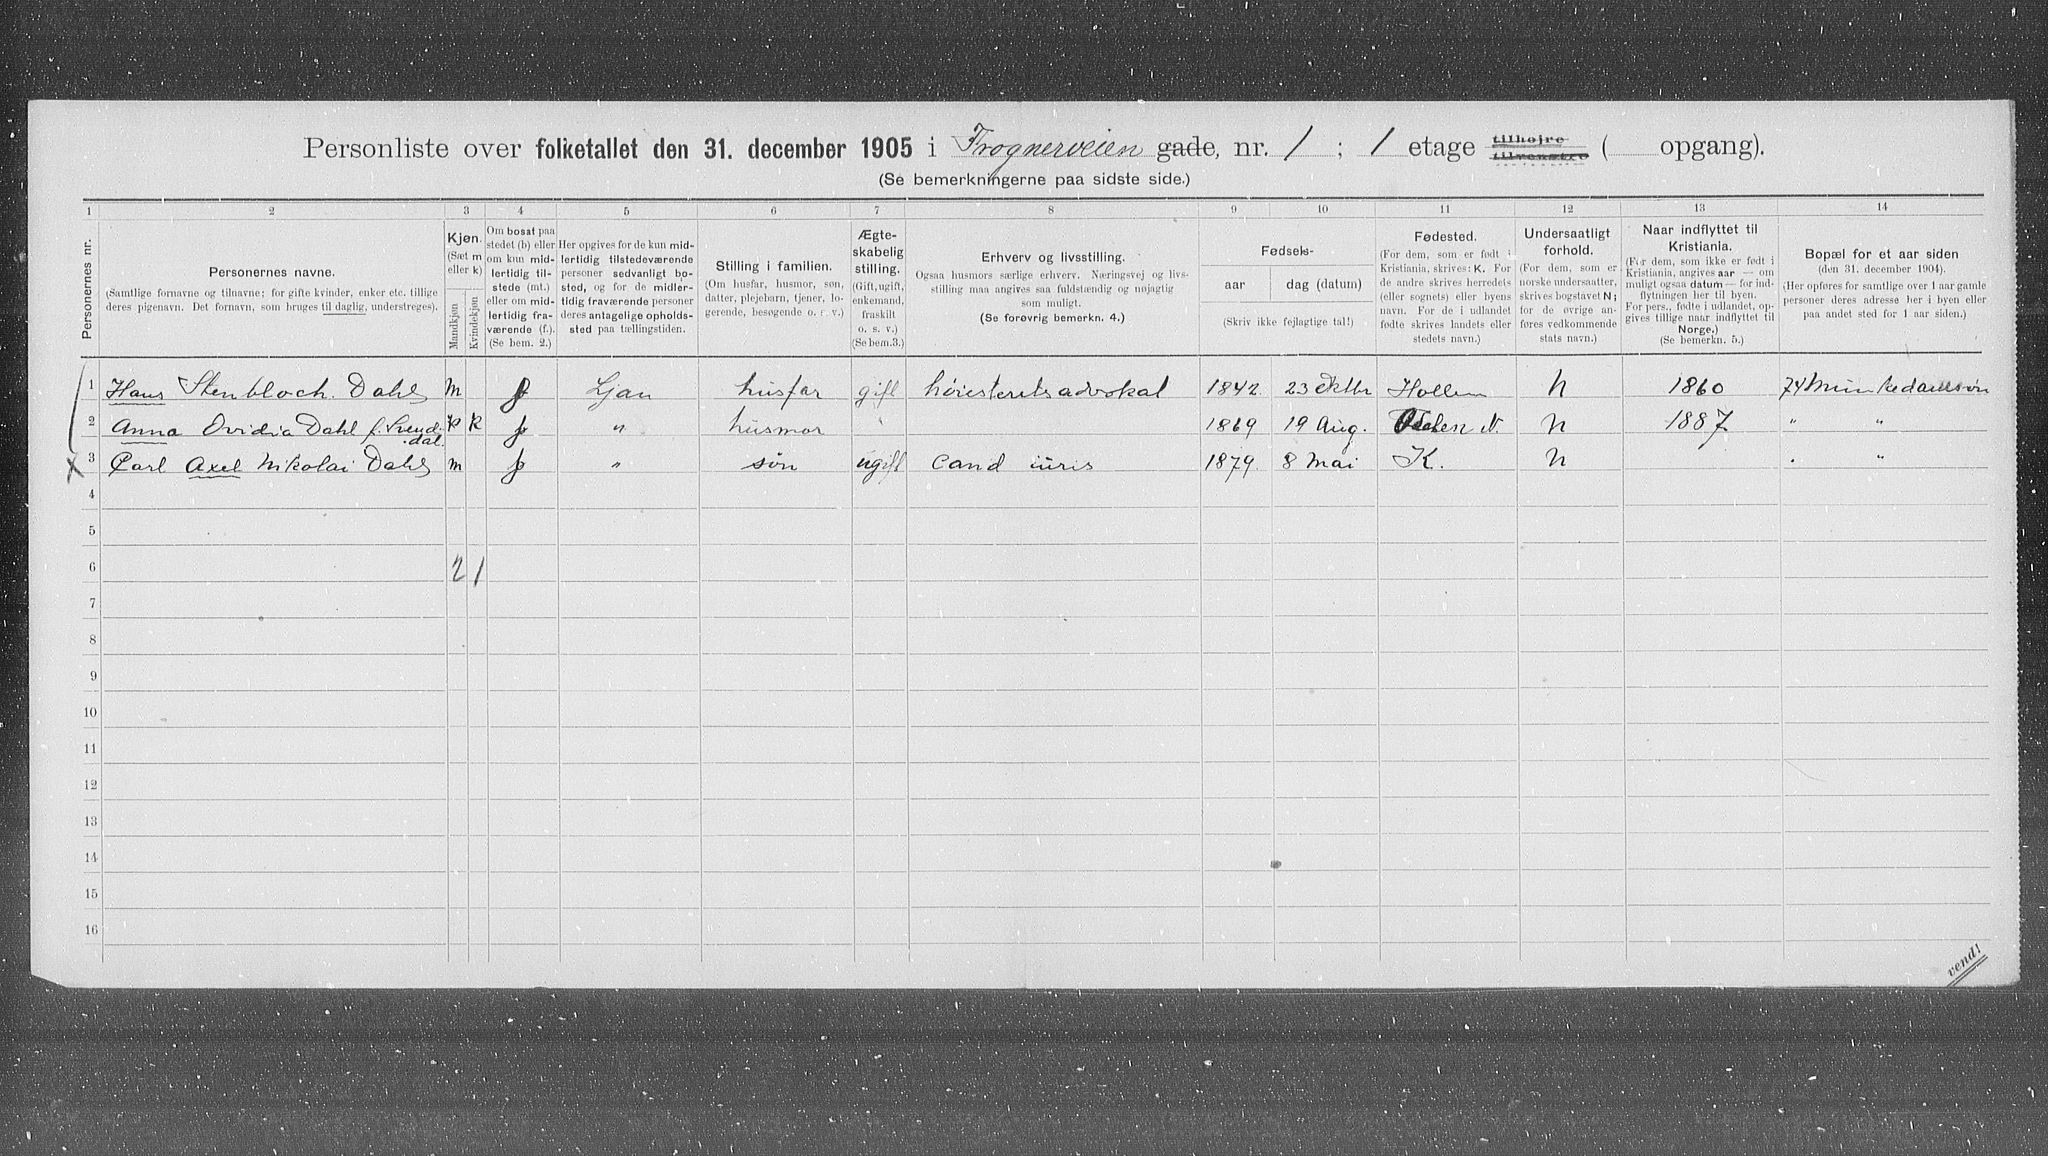 Personliste over folketallet den 31. december 1905 i Frognerveien gade, nr. 1 ; 1 etage tilhøjre tilvenstre ( opgang).
(Se bemerkningerne paa sidste side.)
1 2 3 4 5 6 7 8 9 10 11 12 13 14
Personernes nr.
Personernes navne.
(Samtlige fornavne og tilnavne; for gifte kvinder, enker etc. tillige
deres pigenavn. Det fornavn, som bruges til daglig, understreges).
Kjøn.
(Sæt m
eller k)
Mandkjøn
Kvindekjøn
Om bosat paa
stedet (b) eller
om kun mid-
lertidig til-
stede (mt.)
eller om mid-
lertidig fra-
værende (f.).
(Se bem. 2.)
Her opgives for de kun mid-
lertidig tilstedeværende
personer sedvanligt bo-
sted, og for de midler-
tidig fraværende personer
deres antagelige opholds-
sted paa tællingstiden.
Stilling i familien.
(Om husfar, husmor, søn,
datter, plejebarn, tjener, lo-
gerende, besøgende o. s. v.)
Ægte-
skabelig
stilling.
(Gift, ugift,
enkemand,
fraskilt
o. s. v.)
(Se bem.3.)
Erhverv og livsstilling.
Ogsaa husmors særlige erhverv. Næringsvej og livs-
stilling maa angives saa fuldstændig og nøjagtig
som muligt.
(Se forøvrig bemerkn. 4.)
Fødsels-
aar dag (datum)
(Skriv ikke fejlagtige tal!)
Fødested.
(For dem, som er født i
Kristiania, skrives: K. For
de andre skrives herredets
(eller sognets) eller byens
navn. For de i udlandet
fødte skrives landets eller
stedets navn.)
Undersaatligt
forhold.
(For dem, som er
norske undersaatter,
skrives bogstavet N;
for de øvrige an-
føres vedkommende
stats navn.)
Naar indflyttet til
Kristiania.
(For dem, som ikke er født i
Kristiania, angives aar — om
muligt ogsaa datum — for ind-
flytningen her til byen.
For pers., fødte i udlandet, op-
gives tillige naar indflyttet til
Norge.)
(Se bemerkn. 5.)
Bopæl for et aar siden
(den 31. december 1904).
(Her opføres for samtlige over 1 aar gamle
personer deres adresse her i byen eller
paa andet sted for 1 aar siden.)
1 Hans Stenbloch. Dahl m f Ljan husfar gift høiesteretsadvokat 1842. 23 Oktbr Hollen N 1860 74 Munkedamsvn
2 Anna Ovidia Dahl f. Svend- k k f " husmor 1869 19 Aug. N. N 1887 " "
dal.
x 3 Carl Axel Nikolai Dahl m f " søn ugift cand iuris 1879. 8 Mai K. N " "
4
5
6 2 1
7
8
9
10
11
12
13
14
15
16
vend!